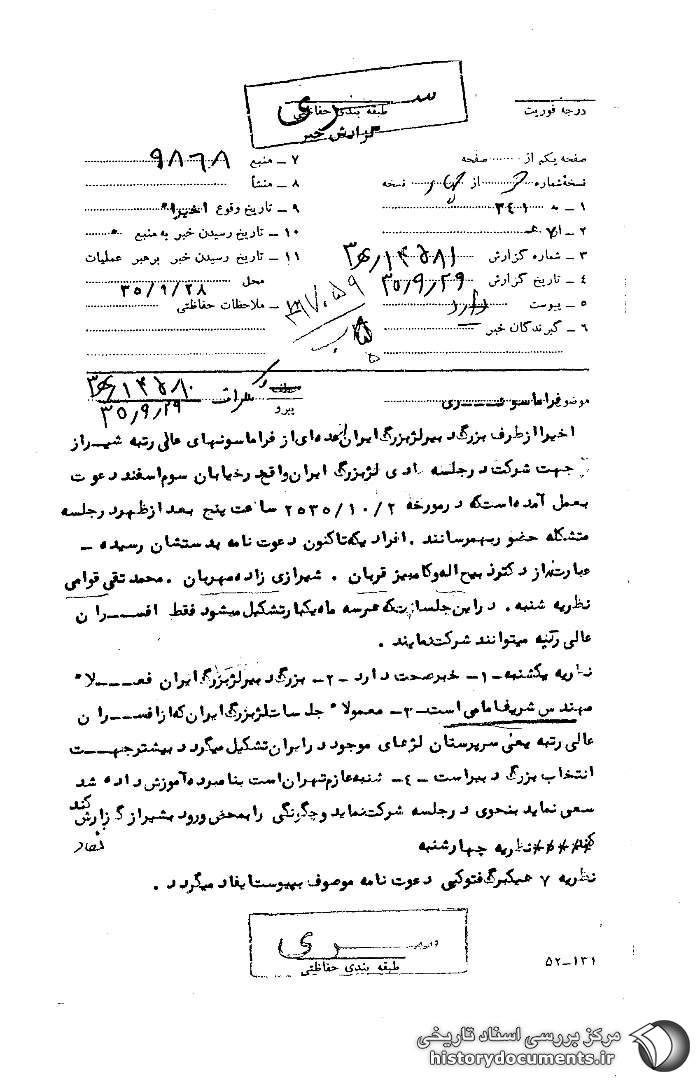 سری
طبقه بندی حفاظتی
گزارش خبر
درجه فوریت
صفحه یکم از صفحه
نسخه شماره ۲ از چهار نسخه
۱ - به ۳۴۱
۲ - از ۷ هـ
۳ - شماره گزارش
۴ - تاریخ گزارش ۳۵/۹/۲۹
۵ - پیوست دارد
۶ - گیرندگان خبر
۷ - منبع ۹۸۶۸
۸ - منشأ
۹ - تاریخ وقوع اخیراً
۱۰ - تاریخ رسیدن خبر به منبع
۱۱ - تاریخ رسیدن خبر برهبر عملیات
محل ۳۵/۹/۲۸
۱۲ - ملاحظات حفاظتی
موضوع فراماسونـــری
پیرو
۳۵/۹/۲۹
اخیرا از طرف بزرگ دبیر لژ بزرگ ایران عده‌ای از فراماسونهای عالی رتبه شیراز
جهت شرکت در جلسه عادی لژ بزرگ ایران واقع در خیابان سوم اسفند دعوت
بعمل آمده است که در مورخه ۲۵۳۵/۱۰/۲ ساعت پنج بعد از ظهر در جلسه
متشکله حضور بهمرسانند . افرادیکه تاکنون دعوت نامه بدستشان رسیده -
عبارتند از دکتر ذبیح اله و کامبیز قربان . شیرازی زاده مهربان . محمد تقی قوامی
نظریه شنبه . در این جلسات که هر سه ماه یکبار تشکیل میشود فقط افســران
عالی رتبه میتوانند شرکت نمایند .
نظریه یکشنبه -۱- خبر صحت دارد -۲- بزرگ دبیر لژ بزرگ ایران فعــلا"
مهندس شریف امامی است -۳- معمولا" جلسات لژ بزرگ ایران که از افســران
عالی رتبه یعنی سرپرستان لژهای موجود در ایران تشکیل میگردد بیشتر جهــت
انتخاب بزرگ دبیر است -٤- شنبه عازم تهران است بنامبرده آموزش داده شد
سعی نماید بنحوی در جلسه شرکت نماید و چگونگی را بمحض ورود بشیراز گزارش کند
نظریه چهارشنبه
نظریه ۷ هـ یکبرگ فتوکپی دعوت نامه موصوف بپیوست ایفاد میگردد .
سری
طبقه بندی حفاظتی
۵۲-۱۳۱
مرکز بررسی اسناد تاریخی
historydocuments.ir